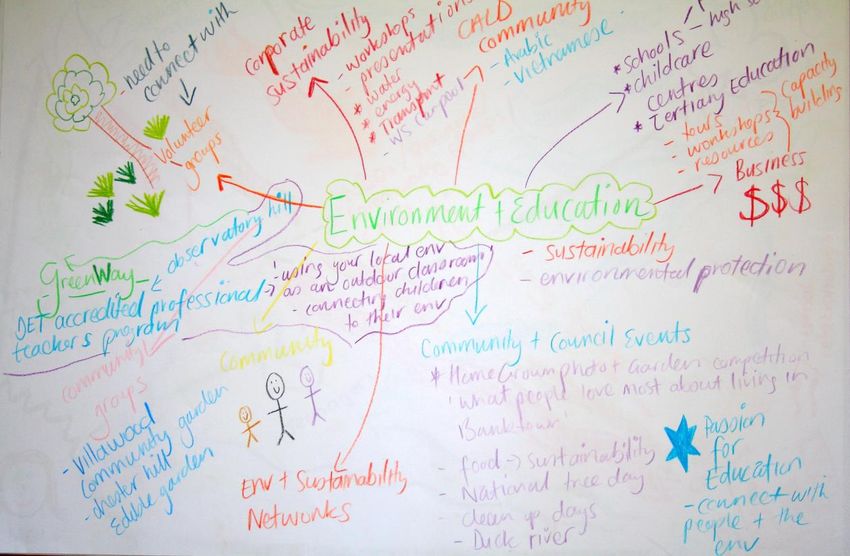 - need to
connect with
Volunteer
groups
Corporate
Sustainability
- workshops
- presentations
* Water
* energy
* Transport
- WS Carpool
CALD
Community
- Arabic
- Vietnamese
* Schools - high
* childcare
centres
* Tertiary Education
- tours
- workshops
- resources
Capacity
building
Business
$$$
Environment + Education
- sustainability
- environmental protection
observatory hill
GreenWay
DET accredited professional
teachers program
'using your local env
as an outdoor classroom'
- connecting children
to their env
Community
groups
- Villawood
Community garden
- chester hill
Edible garden
Community
Env + Sustainability
Networks
Community + Council Events
* Home Grown photo + Garden competition
'what people love most about living in
Bankstown'
- food -> sustainability
- National tree day
- clean up days
- Duck river
Passion
for
Education
- connect with
people + the
env